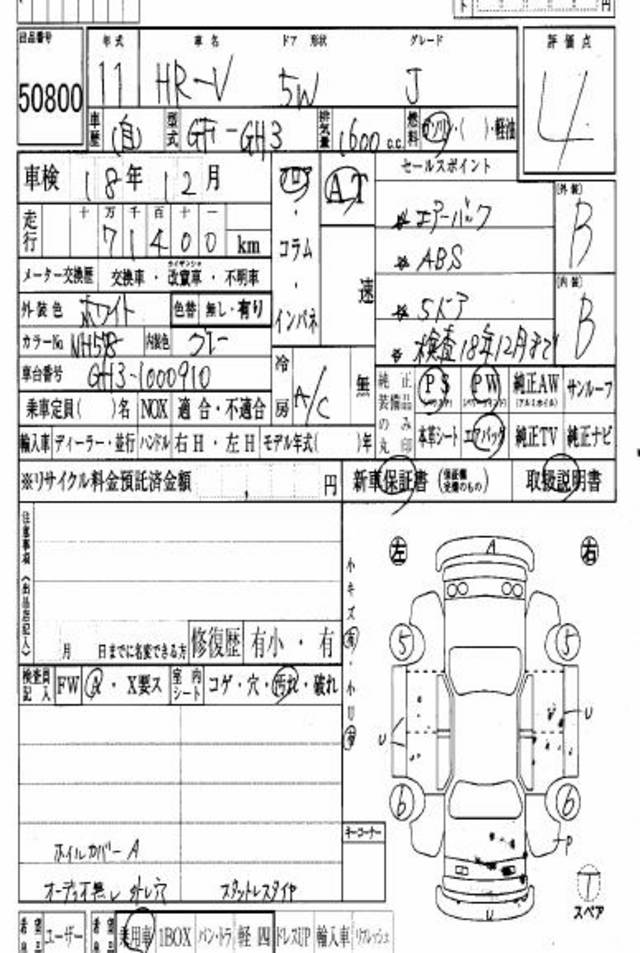 円
出品番号 年式 車名 ドア 形状 グレード 評価点
50800 11 HR-V 5W J 4
車歴 (自) 型式 GF-GH3 排気量 1600 c.c. 燃料 ガソリン・( )・軽油
車検 18年12月 フロア・コラム・インパネ AT 速 セールスポイント
[外装] B
十万千百十一
走行 71400 km
* エアーバック
* ABS
メーター交換歴 交換車・改竄車・不明車
外装色 ホワイト 色替 無し・有り
* 5ドア
[内装] B
カラーNo. NH578 内装色 グレー
* 検査18年12月まで
車台番号 GH3-1000910 冷房 A/C 無
純正装備品のみ丸印 PS PW 純正AW (アルミホイル) サンルーフ
乗車定員( )名 NOX 適合・不適合
本革シート エアバッグ 純正TV 純正ナビ
輸入車 ディーラー・並行 ハンドル 右H・左H モデル年式( )年
※リサイクル料金預託済金額 , 円 新車保証書 (保証継承機のもの) 取扱説明書
注意事項(出品店記入)
左 A 右
小キズ有・小U有
5 5
月 日までに名変できる方 修復歴 有小・有
検査員記入 FW A・X要ス 室内シート コゲ・穴・汚れ・破れ
U U
6 6
キーコーナー
P
ホイルカバーA
オーディオ無し 外し穴 スタットレスタイヤ
U
T
スペア
希望 ユーザー 希望 乗用車 1BOX バン・トラ 軽四 ドレスUP 輸入車 リフレッシュ